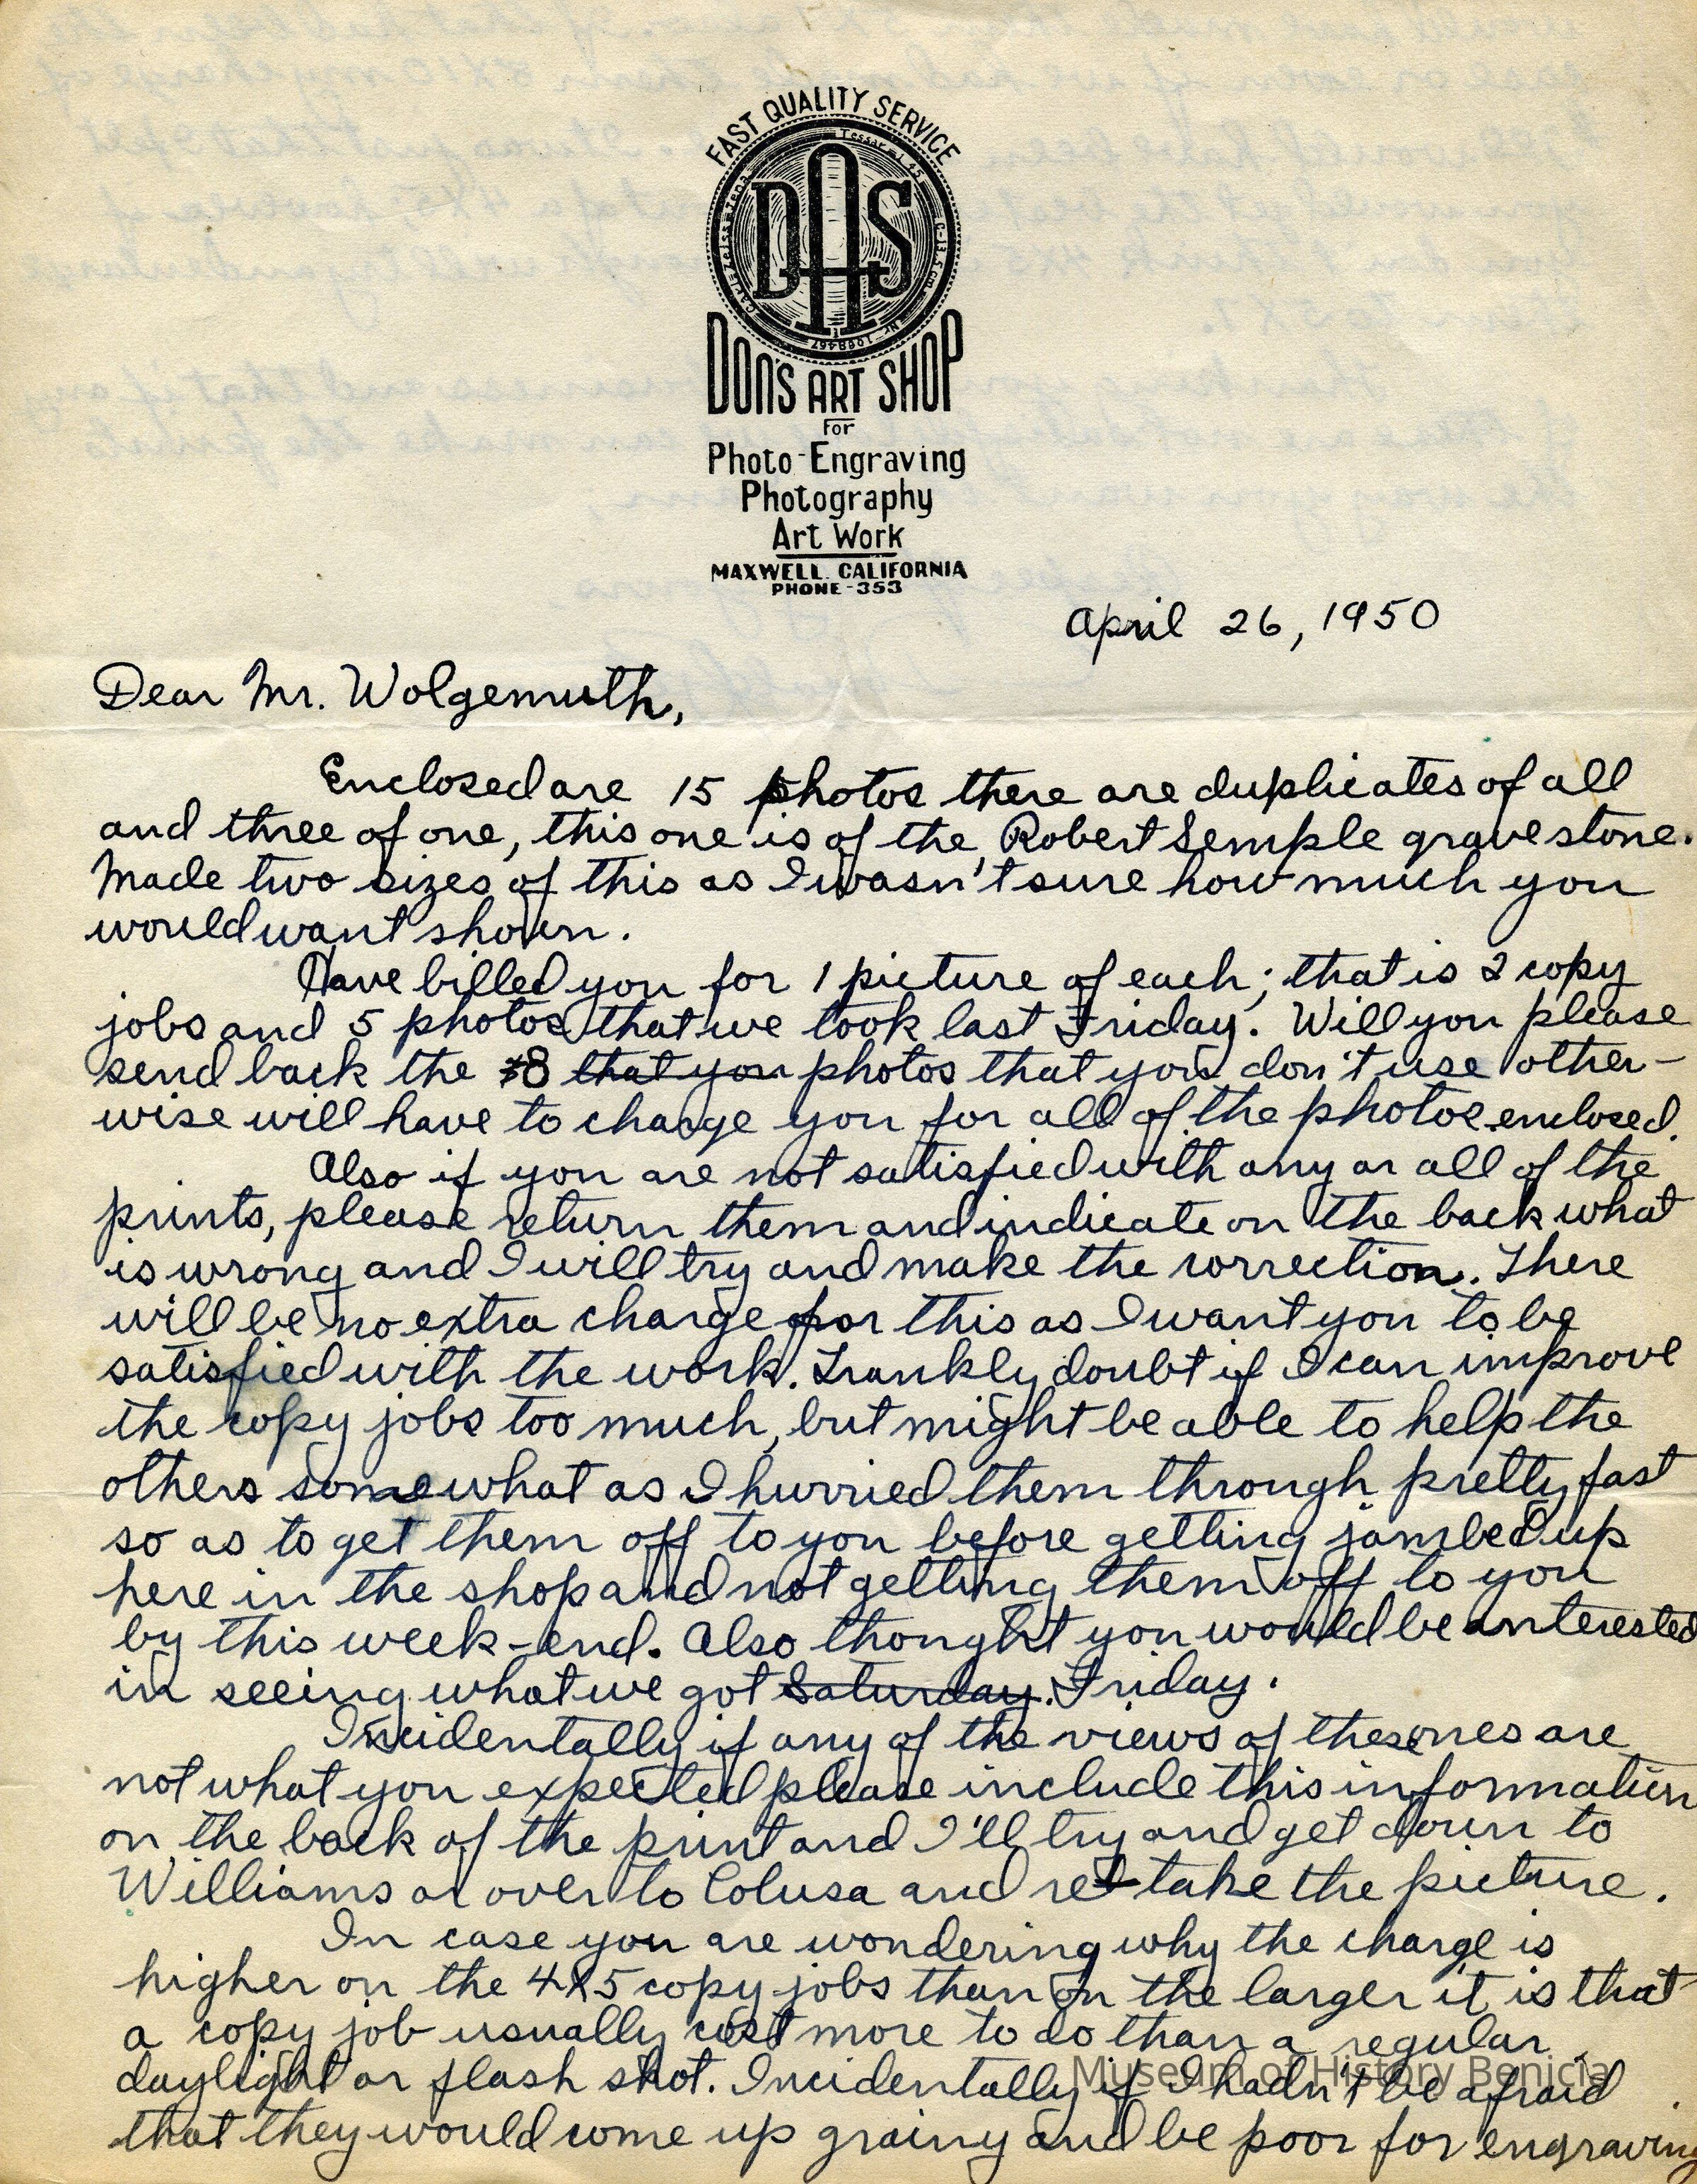 FAST QUALITY SERVICE
Tessar 1:4.5
Carl Zeiss Jena
DAS
Nr. 1088467
DON'S ART SHOP
For
Photo-Engraving
Photography
Art Work
MAXWELL. CALIFORNIA
PHONE-353
April 26, 1950
Dear Mr. Wolgemuth,
Enclosed are 15 photos there are duplicates of all
and three of one, this one is of the Robert Semple gravestone.
Made two sizes of this as I wasn't sure how much you
would want shown.
Have billed you for 1 picture of each; that is 2 copy
jobs and 5 photos that we took last Friday. Will you please
send back the 8 that you photos that you don't use other-
wise will have to charge you for all of the photos enclosed.
Also if you are not satisfied with any or all of the
prints, please return them and indicate on the back what
is wrong and I will try and make the correction. There
will be no extra charge for this as I want you to be
satisfied with the work. Frankly doubt if I can improve
the copy jobs too much, but might be able to help the
others somewhat as I hurried them through pretty fast
so as to get them off to you before getting jambed up
here in the shop and not getting them off to you
by this week-end. Also thought you would be interested
in seeing what we got Saturday. Friday.
Incidentally if any of the views of these ones are
not what you expected please include this information
on the back of the print and I'll try and get down to
Williams or over to Colusa and re-take the picture.
In case you are wondering why the charge is
higher on the 4x5 copy jobs than on the larger it is that
a copy job usually cost more to do than a regular
daylight or flash shot. Incidentally if I hadn't be afraid
that they would come up grainy and be poor for engraving
Museum of History Benicia